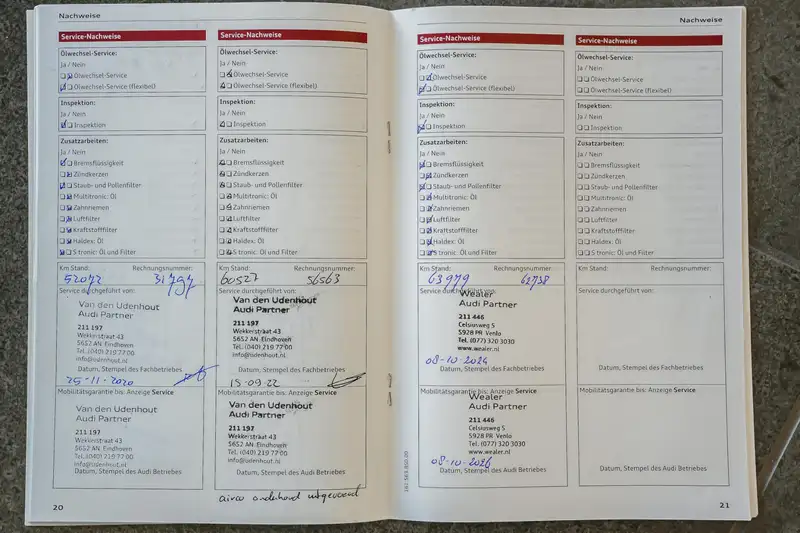 Nachweise
Service-Nachweise
Ölwechsel-Service:
Ja / Nein
Ölwechsel-Service
Ölwechsel-Service (flexibel)
Inspektion:
Ja / Nein
Inspektion
Zusatzarbeiten:
Ja / Nein
Bremsflüssigkeit
Zündkerzen
Staub- und Pollenfilter
Multitronic: Öl
Zahnriemen
Luftfilter
Kraftstofffilter
Haldex: Öl
S tronic: Öl und Filter
Km Stand: Rechnungsnummer:
52072 31797
Service durchgeführt von:
Van den Udenhout
Audi Partner
211 197
Wekkerstraat 43
5652 AN Eindhoven
Tel. (040) 219 77 00
info@udenhout.nl
Datum, Stempel des Fachbetriebes
25-11-2020
Mobilitätsgarantie bis: Anzeige Service
Van den Udenhout
Audi Partner
211 197
Wekkerstraat 43
5652 AN Eindhoven
Tel. (040) 219 77 00
info@udenhout.nl
Datum, Stempel des Audi Betriebes
20
Service-Nachweise
Ölwechsel-Service:
Ja / Nein
Ölwechsel-Service
Ölwechsel-Service (flexibel)
Inspektion:
Ja / Nein
Inspektion
Zusatzarbeiten:
Ja / Nein
Bremsflüssigkeit
Zündkerzen
Staub- und Pollenfilter
Multitronic: Öl
Zahnriemen
Luftfilter
Kraftstofffilter
Haldex: Öl
S tronic: Öl und Filter
Km Stand: Rechnungsnummer:
60527 56563
Service durchgeführt von:
Van den Udenhout
Audi Partner
211 197
Wekkerstraat 43
5652 AN Eindhoven
Tel. (040) 219 77 00
info@udenhout.nl
Datum, Stempel des Fachbetriebes
15-09-22
Mobilitätsgarantie bis: Anzeige Service
Van den Udenhout
Audi Partner
211 197
Wekkerstraat 43
5652 AN Eindhoven
Tel. (040) 219 77 00
info@udenhout.nl
Datum, Stempel des Audi Betriebes
airco onderhoud uitgevoerd
Nachweise
Service-Nachweise
Ölwechsel-Service:
Ja / Nein
Ölwechsel-Service
Ölwechsel-Service (flexibel)
Inspektion:
Ja / Nein
Inspektion
Zusatzarbeiten:
Ja / Nein
Bremsflüssigkeit
Zündkerzen
Staub- und Pollenfilter
Multitronic: Öl
Zahnriemen
Luftfilter
Kraftstofffilter
Haldex: Öl
S tronic: Öl und Filter
Km Stand: Rechnungsnummer:
63979 62738
Service durchgeführt von:
Wealer
Audi Partner
211 446
Celsiusweg 5
5928 PR Venlo
Tel. (077) 320 3030
www.wealer.nl
08-10-2024
Datum, Stempel des Fachbetriebes
Mobilitätsgarantie bis: Anzeige Service
Wealer
Audi Partner
211 446
Celsiusweg 5
5928 PR Venlo
Tel. (077) 320 3030
www.wealer.nl
08-10-2026
Datum, Stempel des Audi Betriebes
Service-Nachweise
Ölwechsel-Service:
Ja / Nein
Ölwechsel-Service
Ölwechsel-Service (flexibel)
Inspektion:
Ja / Nein
Inspektion
Zusatzarbeiten:
Ja / Nein
Bremsflüssigkeit
Zündkerzen
Staub- und Pollenfilter
Multitronic: Öl
Zahnriemen
Luftfilter
Kraftstofffilter
Haldex: Öl
S tronic: Öl und Filter
Km Stand: Rechnungsnummer:
Service durchgeführt von:
Datum, Stempel des Fachbetriebes
Mobilitätsgarantie bis: Anzeige Service
Datum, Stempel des Audi Betriebes
21